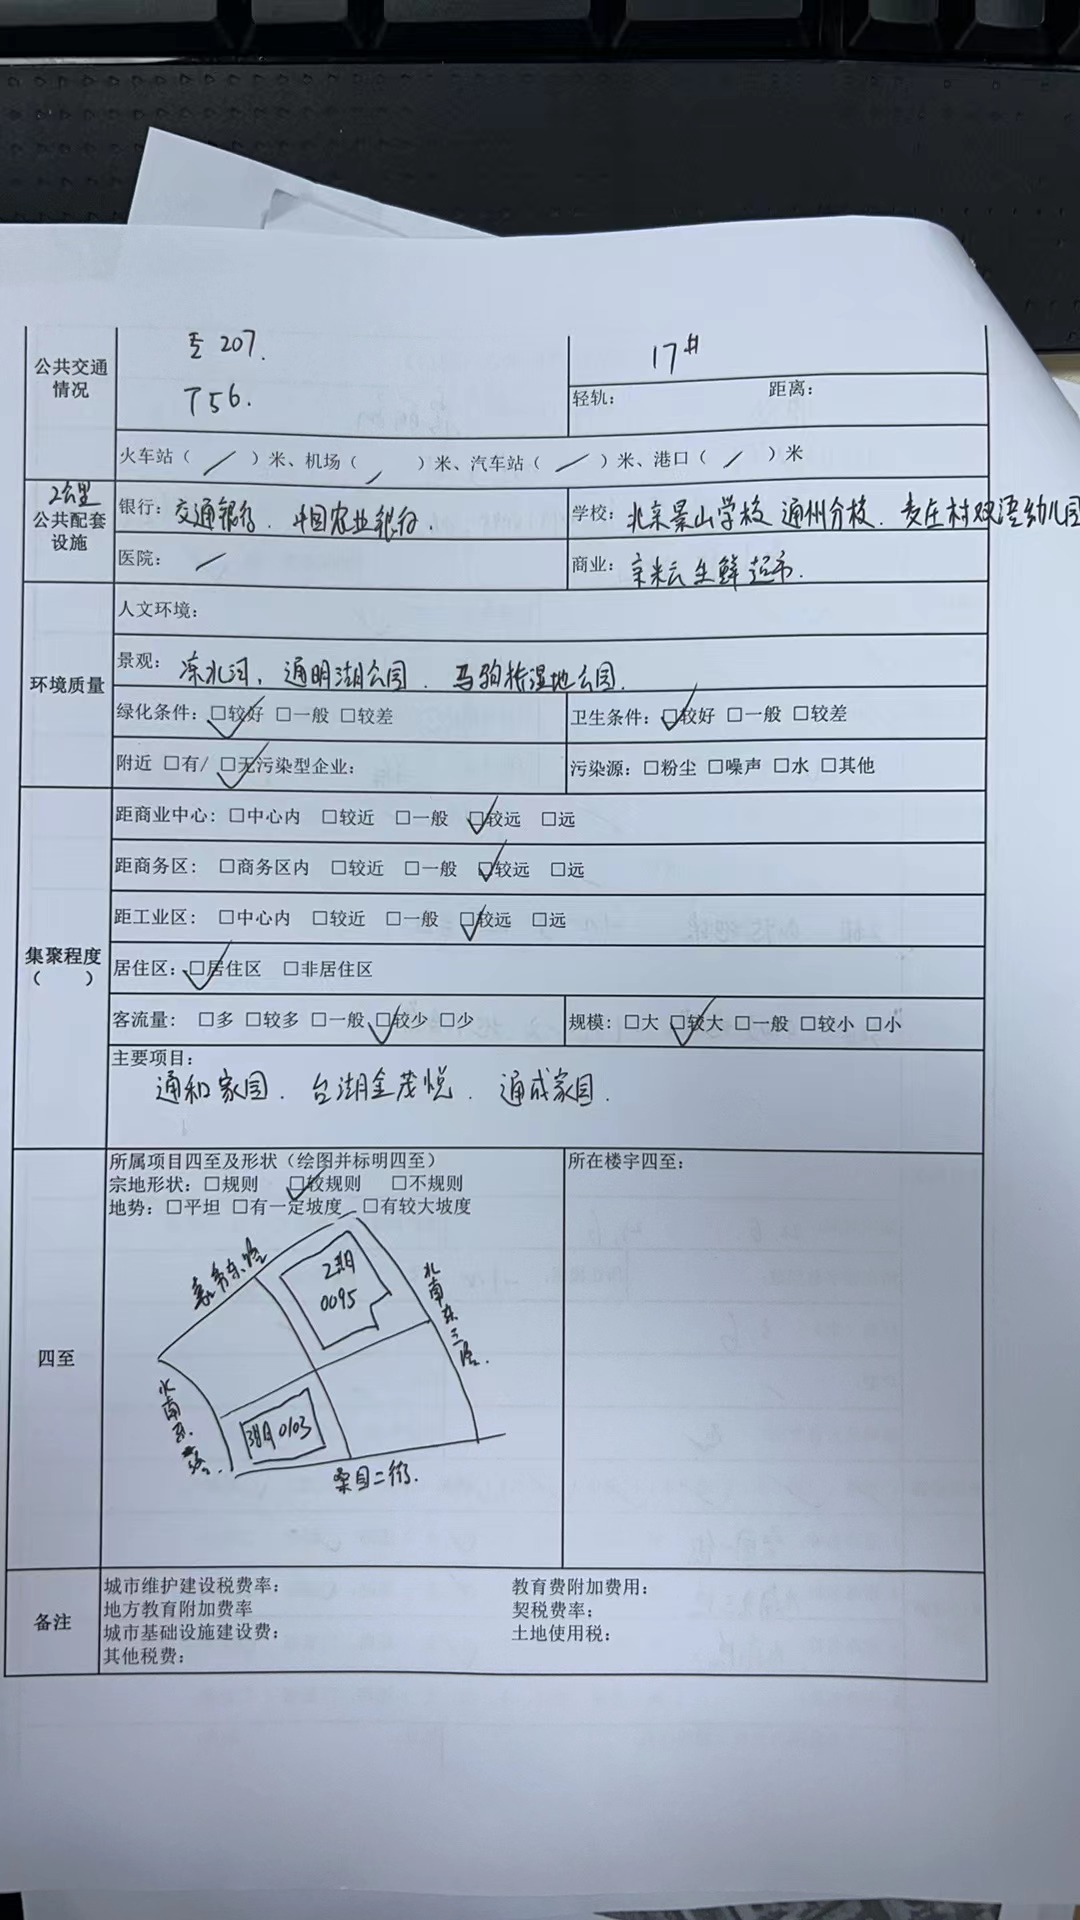 公共交通情况
专 207.
T56.
17#
轻轨： 距离：
火车站（ / ）米、机场（ / ）米、汽车站（ / ）米、港口（ / ）米
2公里
公共配套设施
银行：交通银行、中国农业银行.
学校：北京景山学校通州分校、麦庄村双语幼儿园
医院： /
商业：京米云生鲜超市.
环境质量
人文环境：
景观：凉水河，通明湖公园、马驹桥湿地公园.
绿化条件：☑较好 □一般 □较差
卫生条件：☑较好 □一般 □较差
附近 □有/ ☑无污染型企业：
污染源：□粉尘 □噪声 □水 □其他
集聚程度（ ）
距商业中心：□中心内 □较近 □一般 ☑较远 □远
距商务区： □商务区内 □较近 □一般 ☑较远 □远
距工业区： □中心内 □较近 □一般 ☑较远 □远
居住区：☑居住区 □非居住区
客流量： □多 □较多 □一般 ☑较少 □少
规模：□大 ☑较大 □一般 □较小 □小
主要项目：
通和家园、台湖金茂悦、通成家园.
四至
所属项目四至及形状（绘图并标明四至）
宗地形状：□规则 ☑较规则 □不规则
地势：□平坦 □有一定坡度 □有较大坡度
所在楼宇四至：
东路
2期
0095
水南东三路.
水南东路.
3期 0103
桑园二街.
备注
城市维护建设税费率：
教育费附加费用：
地方教育附加费率
契税费率：
城市基础设施建设费：
土地使用税：
其他税费：